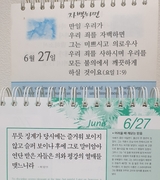 만일 우리가
우리 죄를 자백하면
그는 미쁘시고 의로우사
우리 죄를 사하시며 우리를
모든 불의에서 깨끗하게
하실 것이요(요일 1:9)
6월 27일
June
6/27
무릇 징계가 당시에는 즐거워 보이지
않고 슬퍼 보이나 후에 그로 말미암아
연단 받은 자들은 의와 평강의 열매를
맺느니라